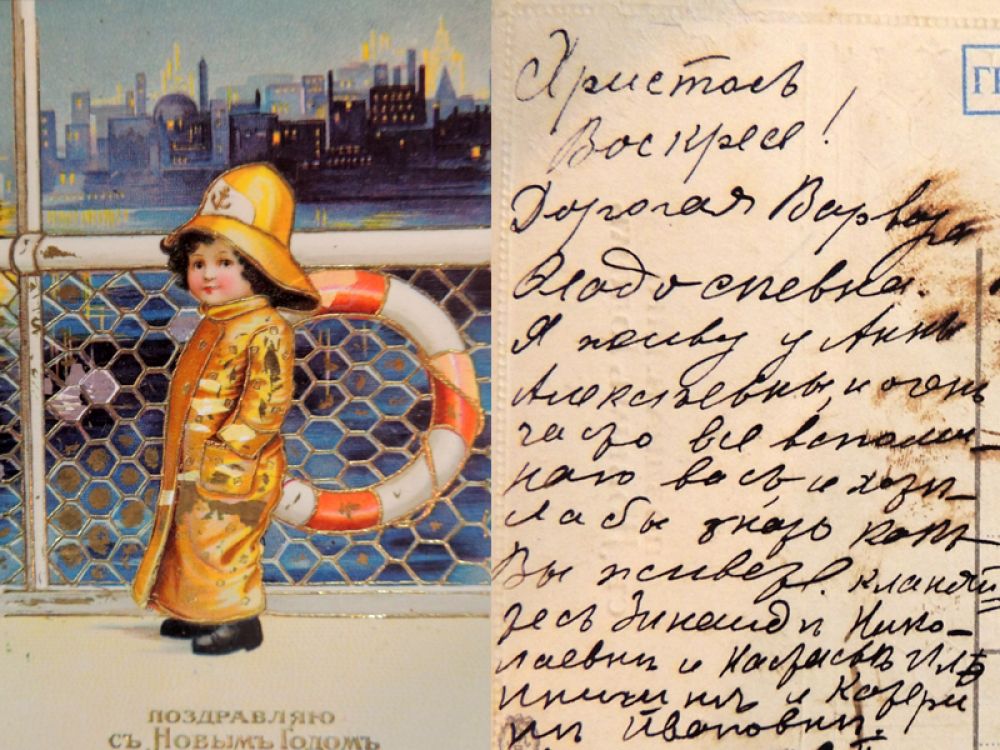 ПОЗДРАВЛЯЮ
СЪ НОВЫМЪ ГОДОМЪ
Христосъ
Воскресе!
Дорогая Варвара
Я живу у Анны
Алексѣевны, и очень
часто все вспоми-
наю васъ и хотѣ-
ла бы знать какъ
Вы живете. Кланяй
тесь Зинаидѣ Нико-
лаевнѣ и
и Катери
нѣ Ивановнѣ.